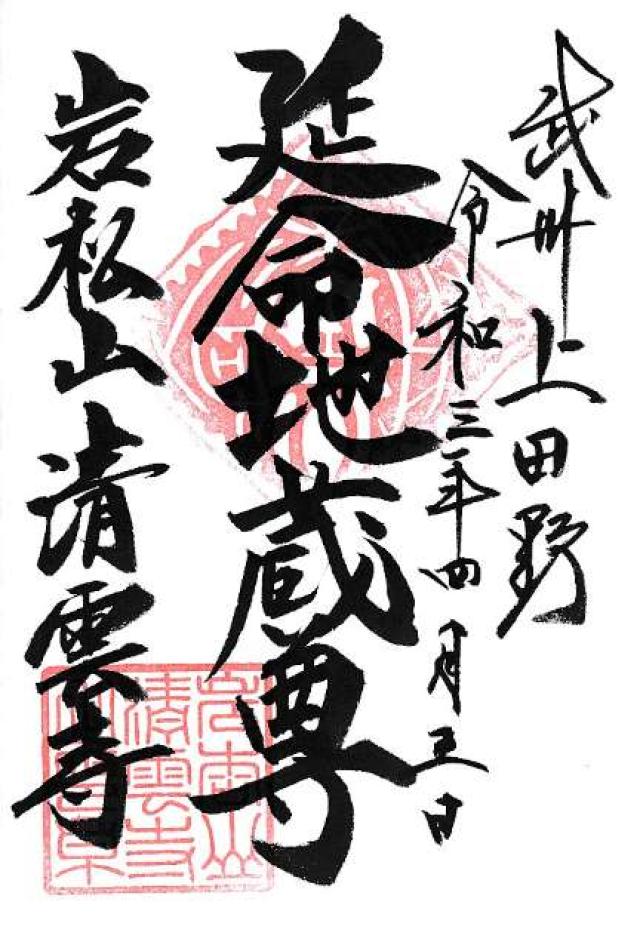 武州 上田野
令和三年四月五日
延命地蔵尊
岩松山 清雲寺
清雲寺